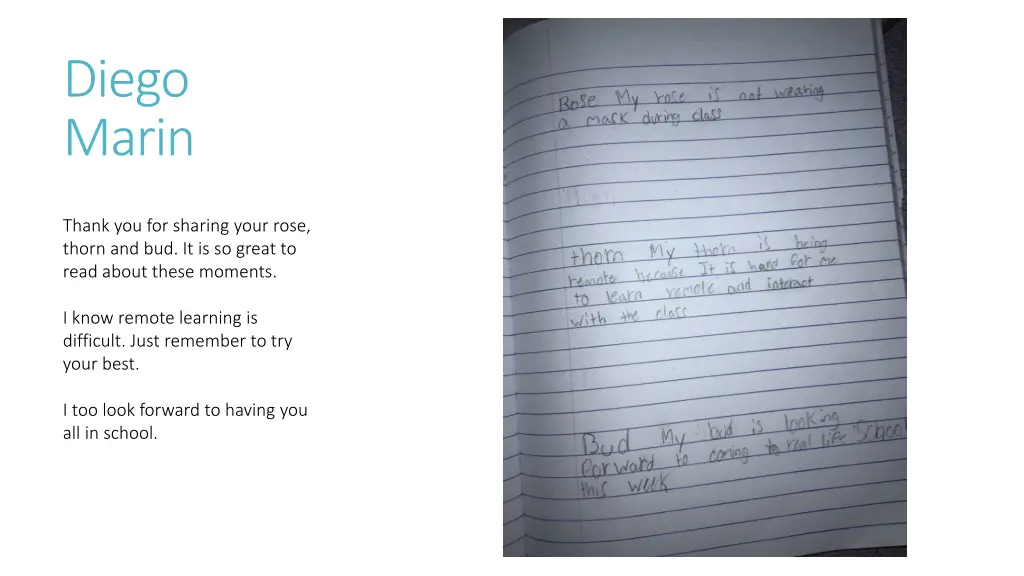 Diego
Marin
Thank you for sharing your rose,
thorn and bud. It is so great to
read about these moments.
I know remote learning is
difficult. Just remember to try
your best.
I too look forward to having you
all in school.
Rose My rose is not wearing
a mask during class
thorn My thorn is being
remote because It is hard for me
to learn remote and interact
with the class
Bud My bud is looking
forward to coming to real life school
this week